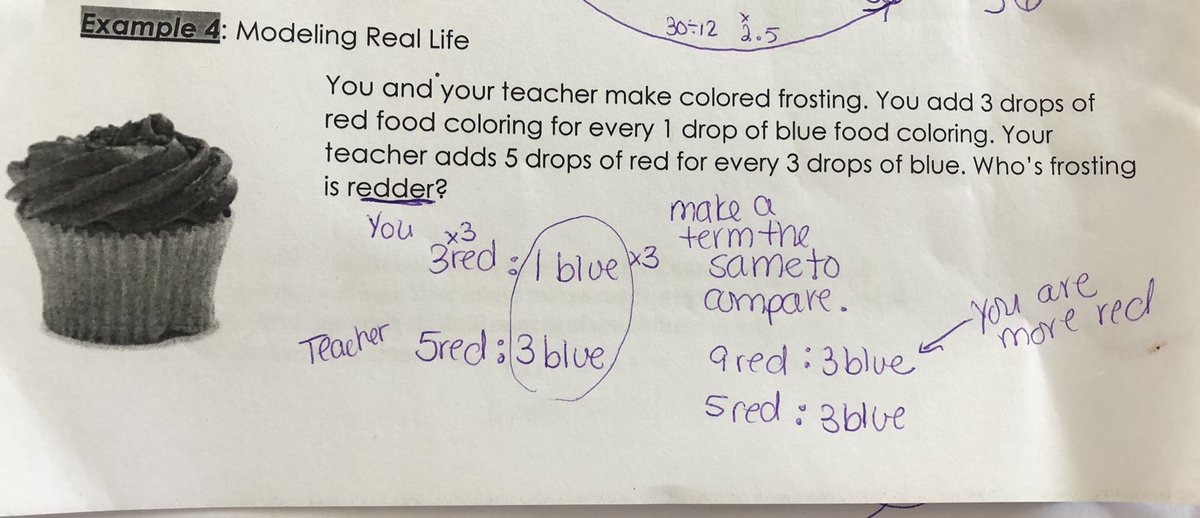 30÷12 x 2.5
Example 4: Modeling Real Life
You and your teacher make colored frosting. You add 3 drops of
red food coloring for every 1 drop of blue food coloring. Your
teacher adds 5 drops of red for every 3 drops of blue. Who's frosting
is redder?
You x3
3red : 1 blue x3
Teacher 5red : 3 blue
make a
term the
same to
compare.
9 red : 3 blue
5 red : 3 blue
you are
more red